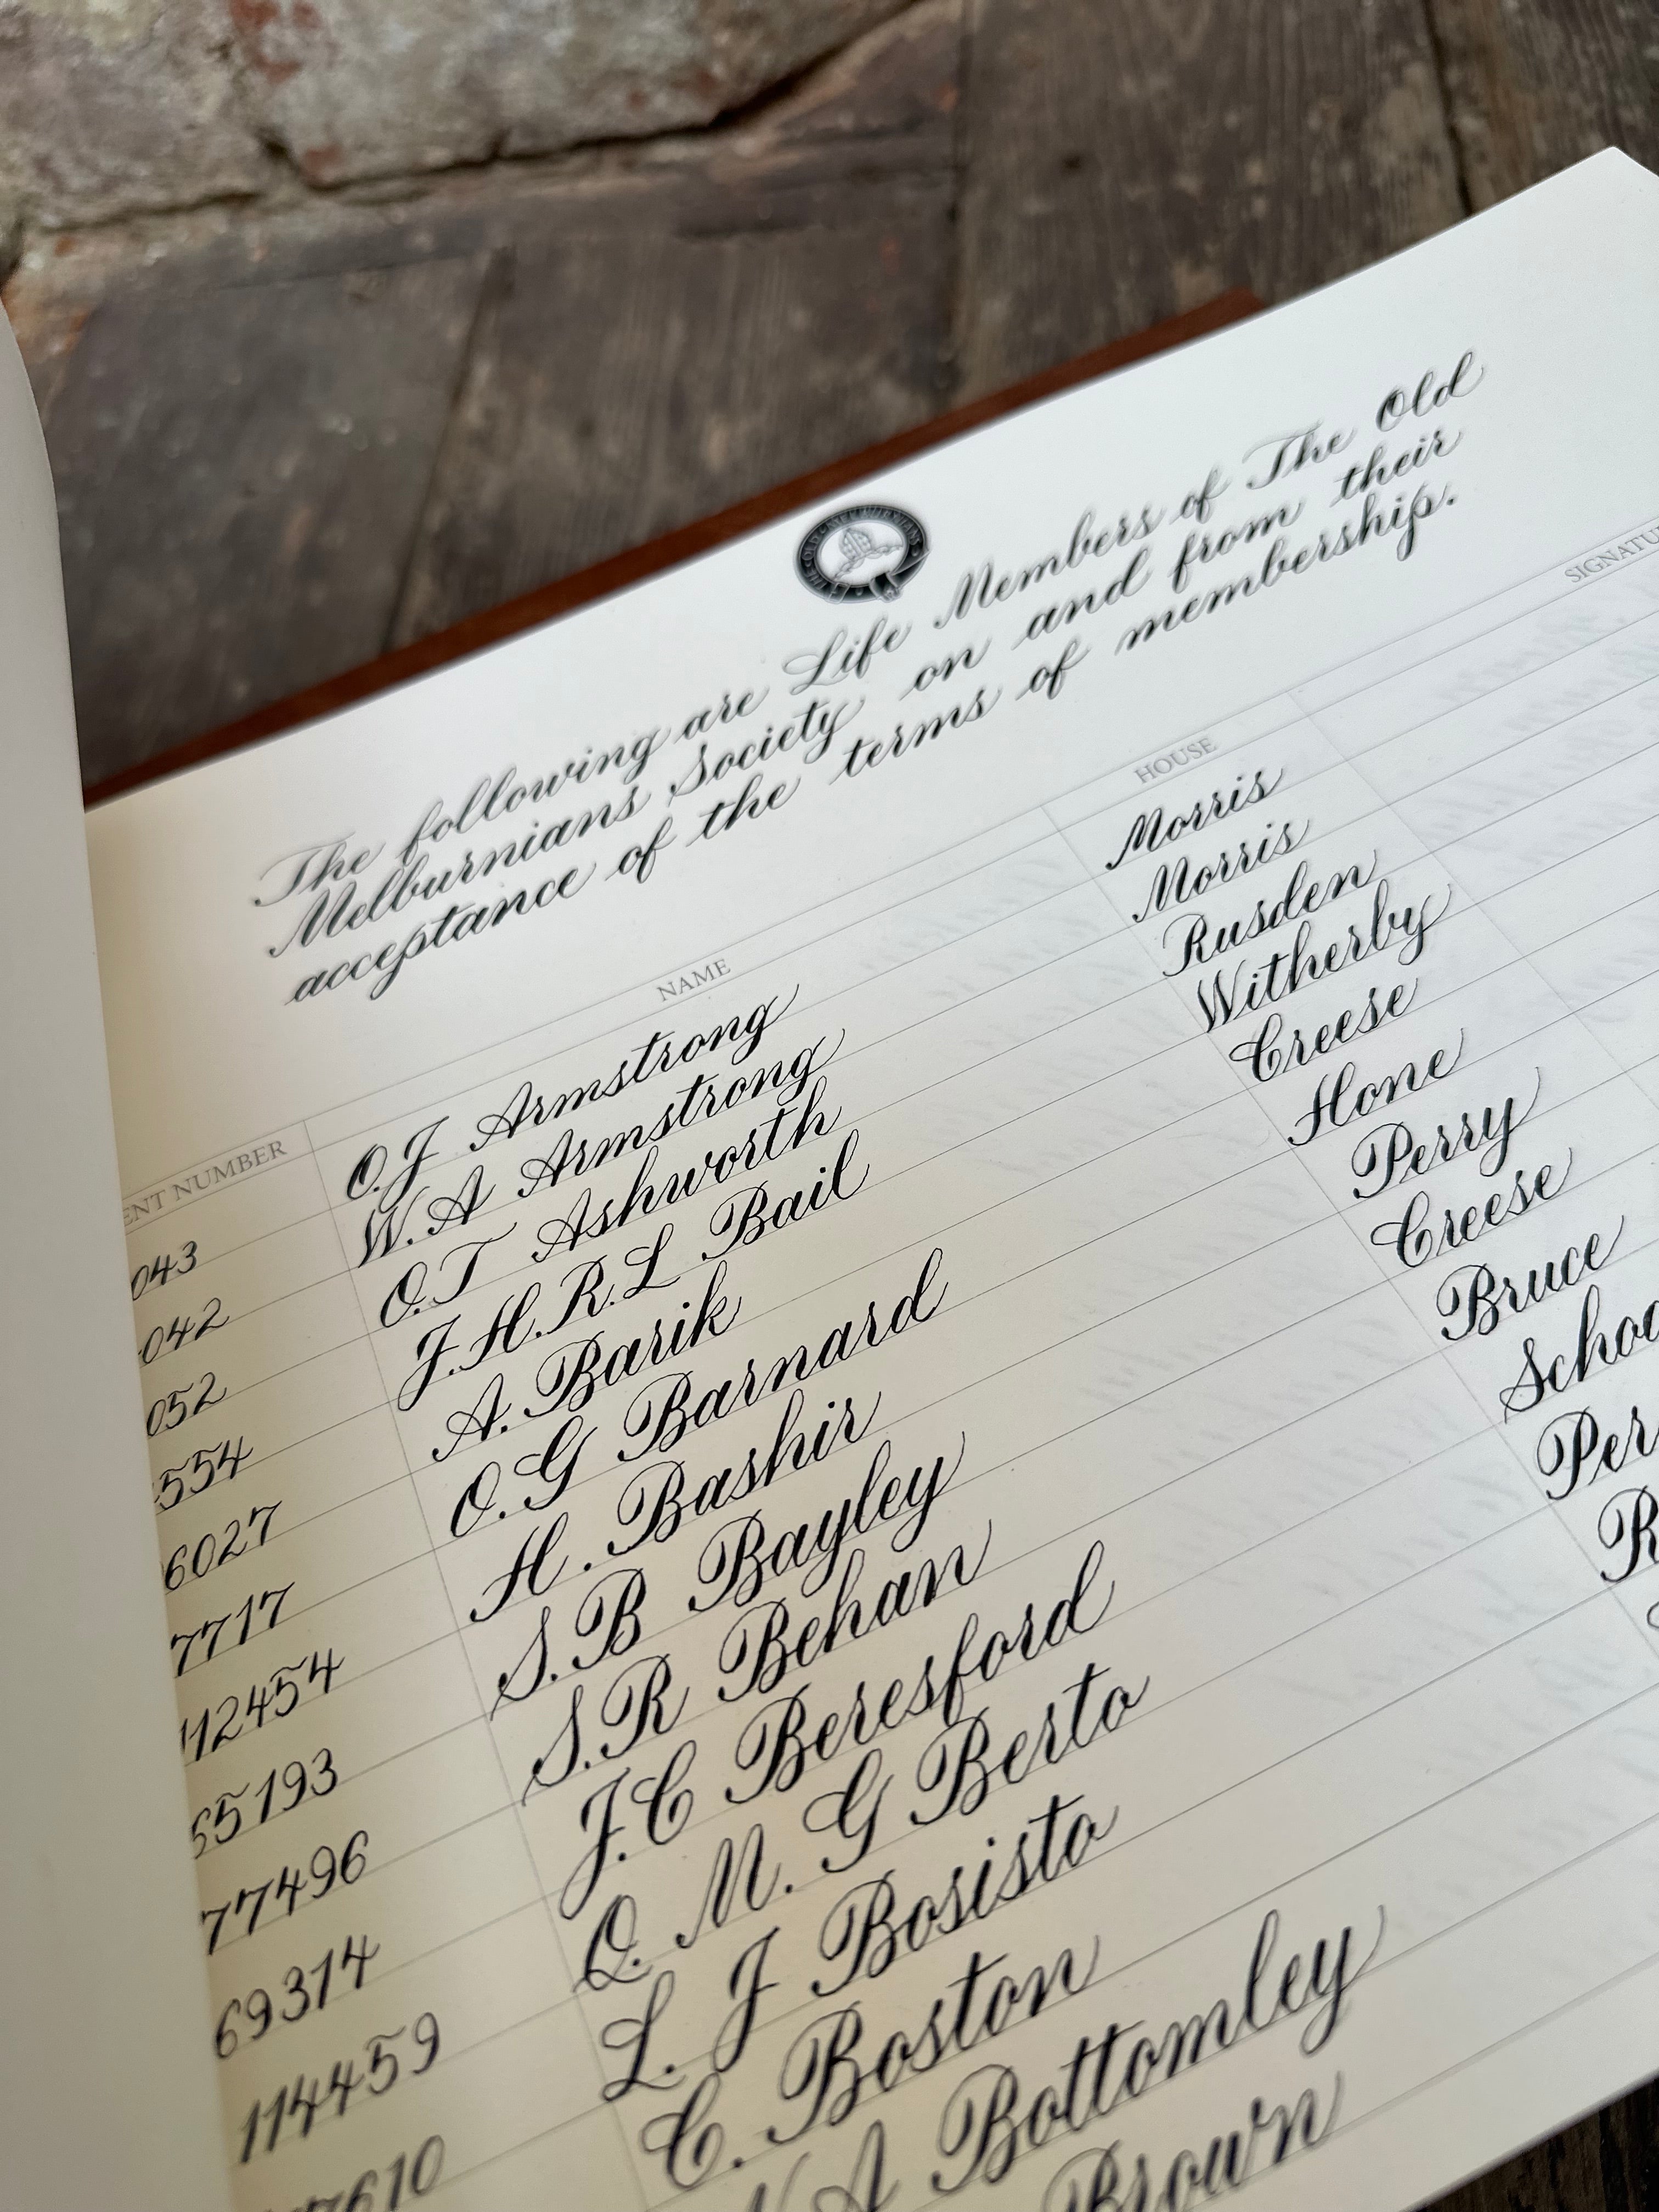 The following are Life Members of The Old
Melburnians Society on and from their
acceptance of the terms of membership.
NUMBER NAME HOUSE
043 O.J Armstrong Morris
042 W.A Armstrong Morris
052 O.T Ashworth Rusden
554 J.H.R.L Bail Witherby
6027 A. Barik Creese
7717 O.G Barnard Hone
112454 H. Bashir Perry
65193 S.B Bayley Creese
77496 S.R Behan Bruce
69314 J.C Beresford
114459 Q.M.G Berto
7610 L.J Bosisto
C. Boston
A Bottomley
Brown